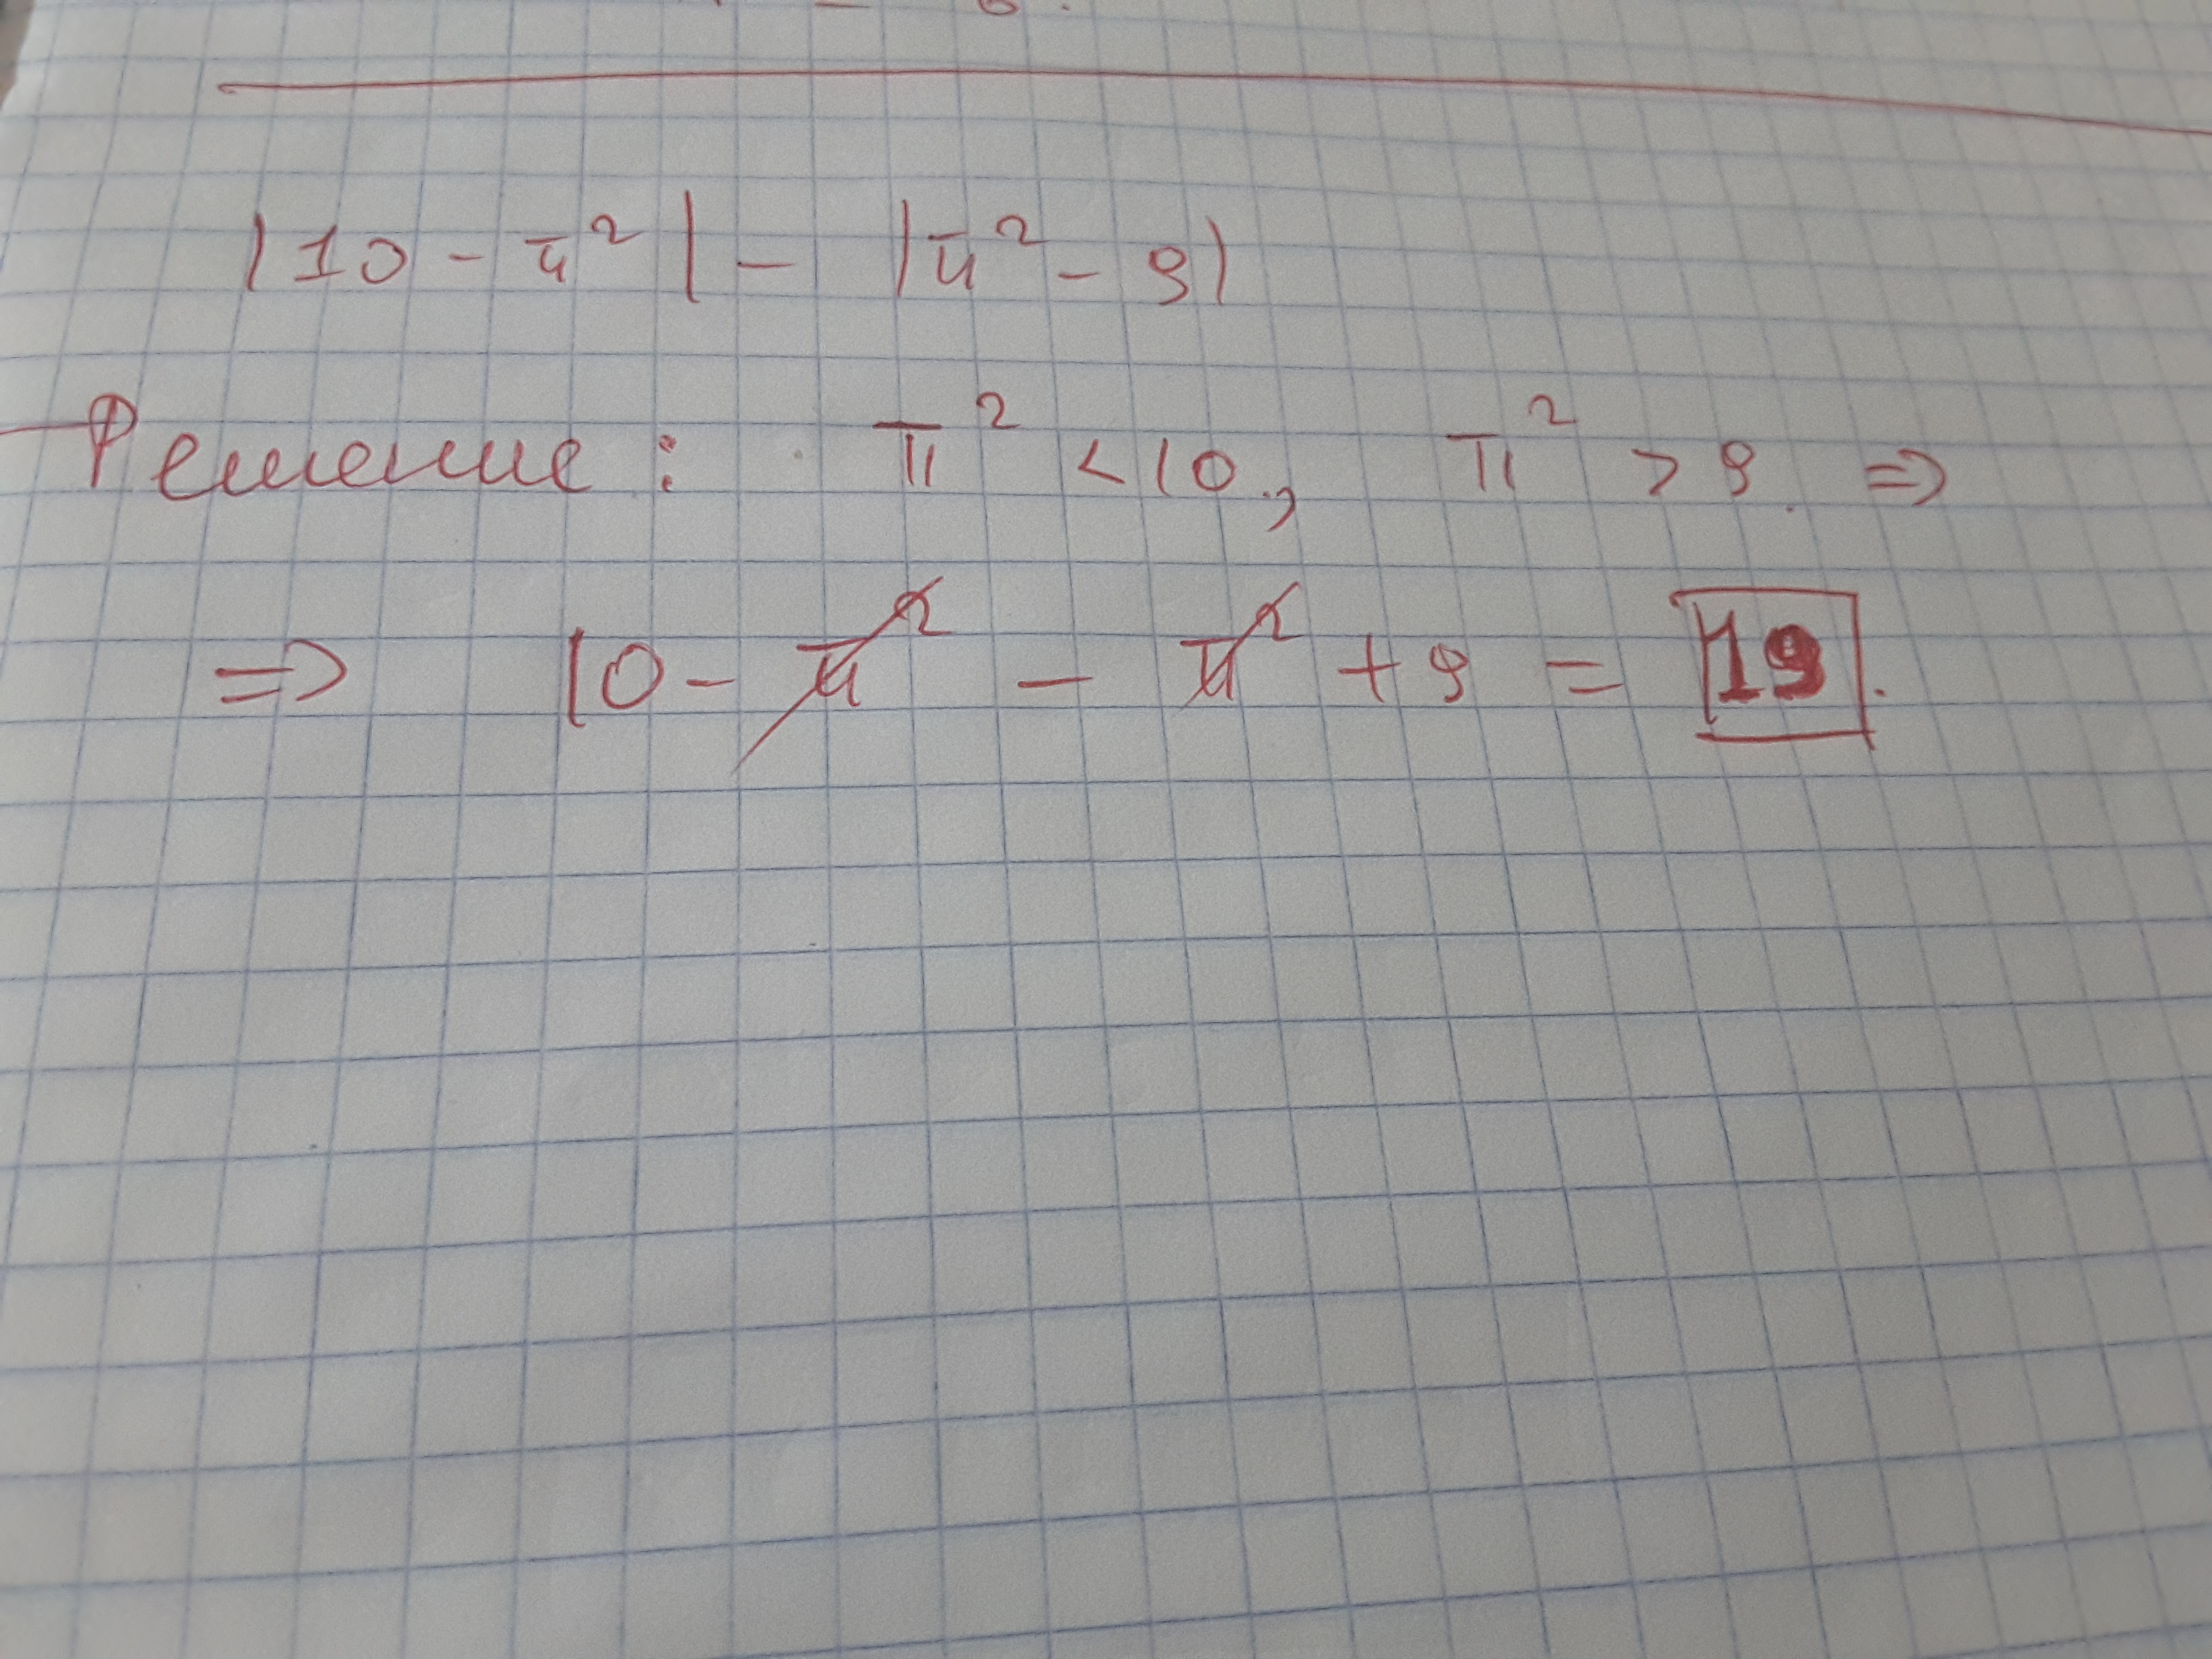 |10 - π² | - |π² - 9|
Решение: π² < 10, π² > 9. =>
=> 10 - π² - π² + 9 = 19.